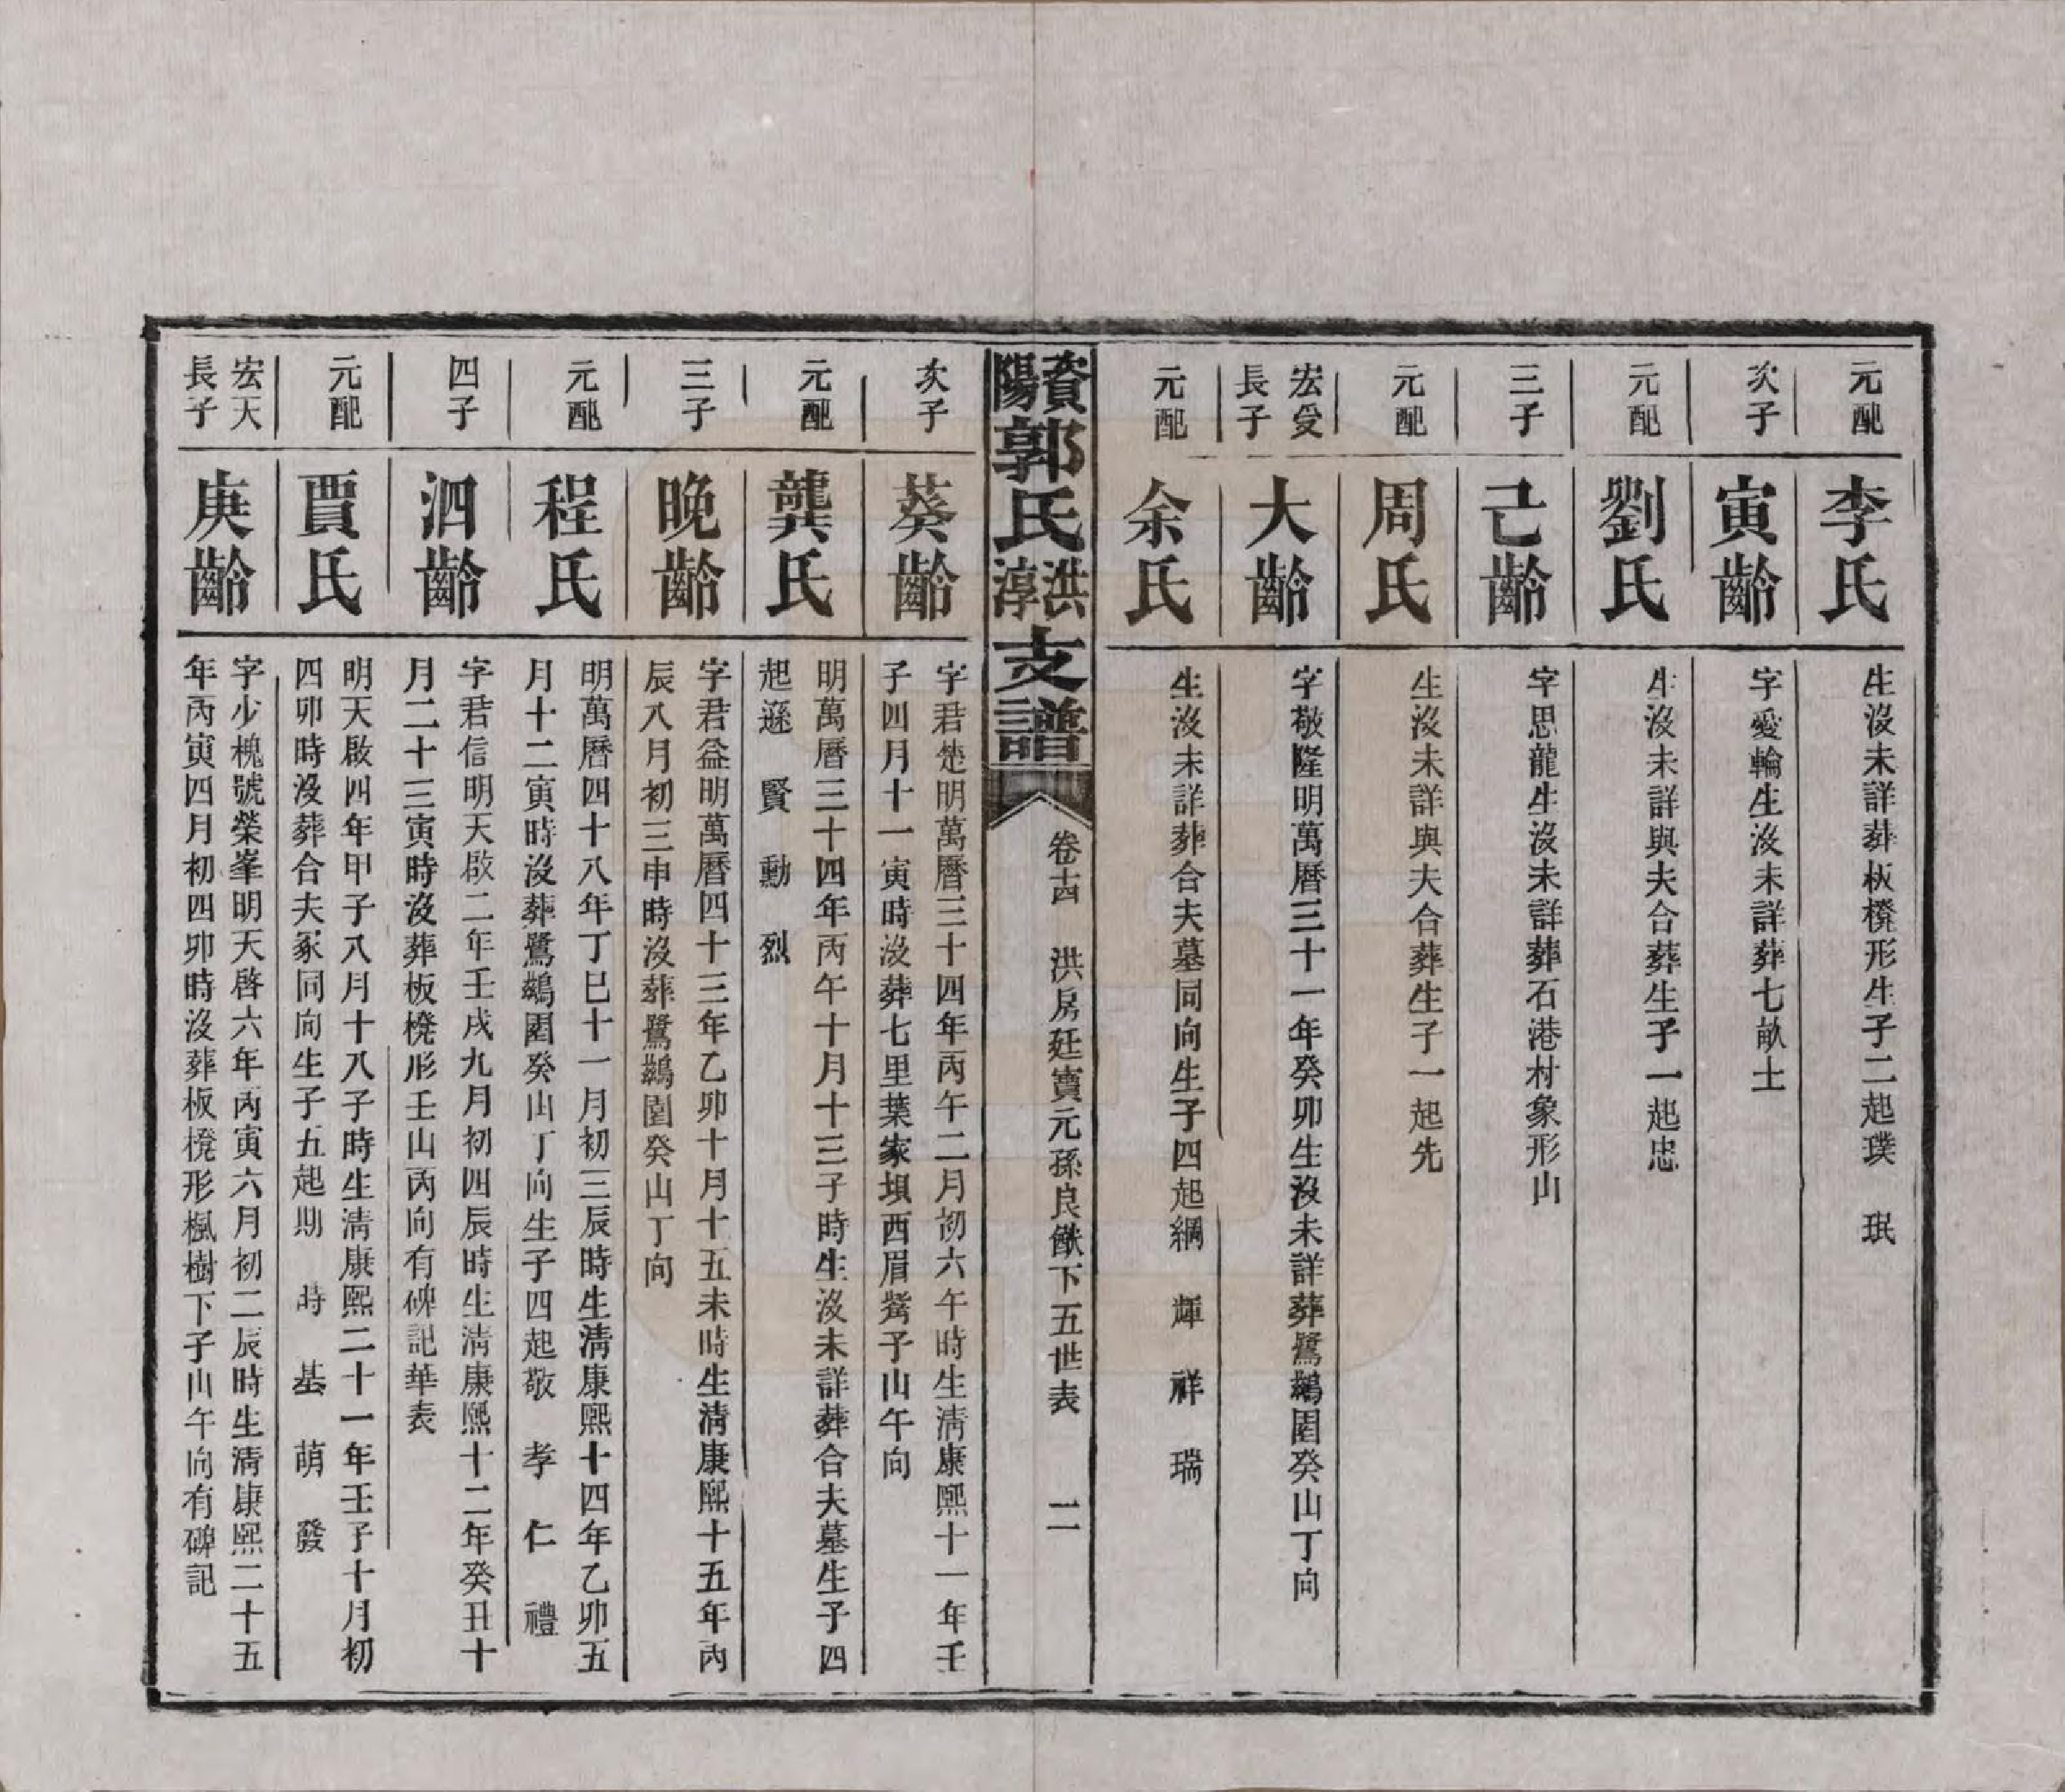 元配
李氏
生沒未詳葬板櫈形生子二起璞　珉
次子
寅齡
字愛輪生沒未詳葬七畝土
元配
劉氏
生沒未詳與夫合葬生子一起忠
三子
己齡
字思龍生沒未詳葬石港村象形山
元配
周氏
生沒未詳與夫合葬生子一起先
宏受
長子
大齡
字敬隆明萬曆三十一年癸卯生沒未詳葬鷺鷀園癸山丁向
元配
余氏
生沒未詳葬合夫墓同向生子四起綱　輝　祥　瑞
資陽郭氏洪淳支譜
卷十四　洪房廷寶元孫良猷下五世表　二
次子
葵齡
字君楚明萬曆三十四年丙午二月初六午時生清康熙十一年壬
子四月十一寅時沒葬七里葉家垻西眉觜子山午向
元配
龔氏
明萬曆三十四年丙午十月十三子時生沒未詳葬合夫墓生子四
起遜　賢　勳　烈
三子
晚齡
字君益明萬曆四十三年乙卯十月十五未時生清康熙十五年丙
辰八月初三申時沒葬鷺鷀園癸山丁向
元配
程氏
明萬曆四十八年丁巳十一月初三辰時生清康熙十四年乙卯五
月十二寅時沒葬鷺鷀園癸山丁向生子四起敬　孝　仁　禮
四子
泗齡
字君信明天啟二年壬戌九月初四辰時生清康熙十二年癸丑十
月二十三寅時沒葬板櫈形壬山丙向有碑記華表
元配
賈氏
明天啟四年甲子八月十八子時生清康熙二十一年壬子十月初
四卯時沒葬合夫冢同向生子五起期　時　基　萌　發
宏天
長子
庚齡
字少槐號榮峯明天啓六年丙寅六月初二辰時生清康熙二十五
年丙寅四月初四卯時沒葬板櫈形楓樹下子山午向有碑記